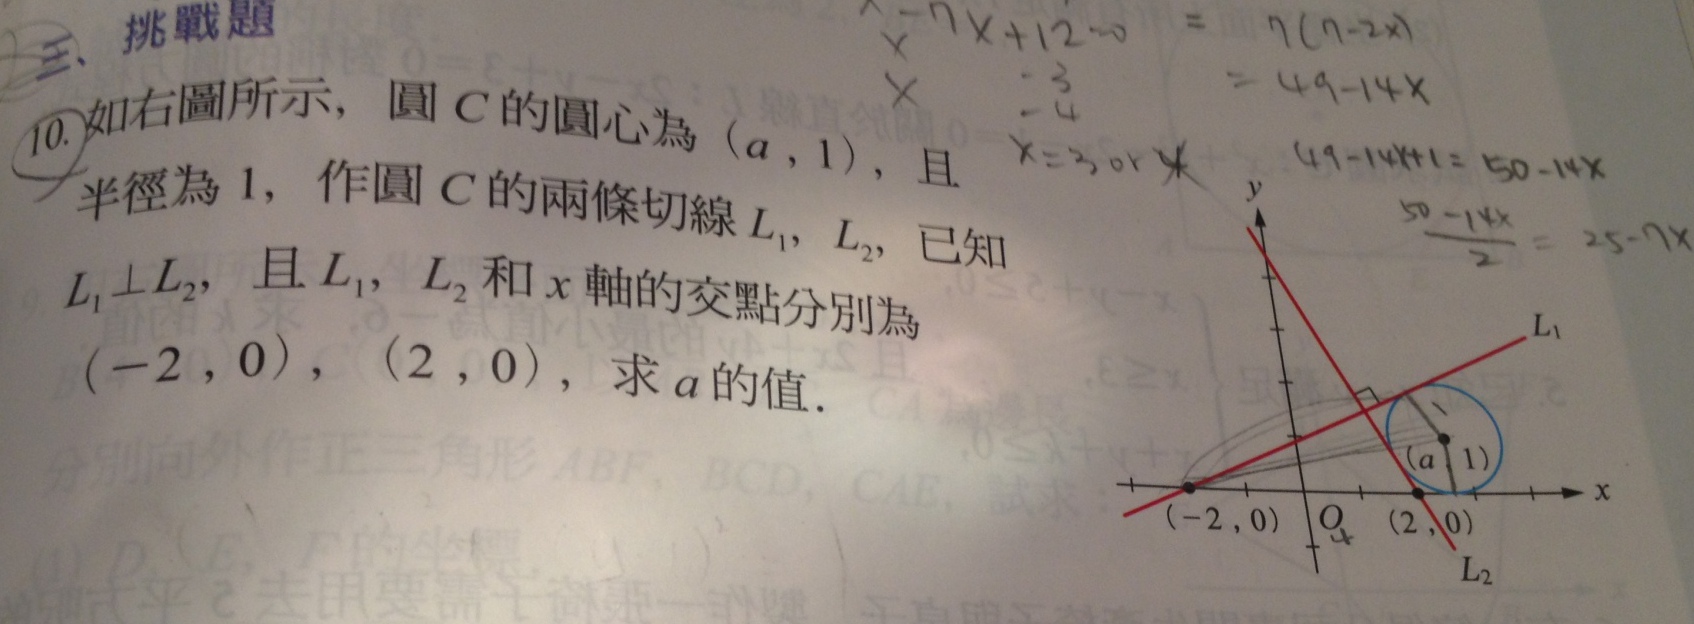 三、挑戰題
10. 如右圖所示，圓 C 的圓心為（a , 1），且
半徑為 1，作圓 C 的兩條切線 L₁，L₂，已知
L₁⊥L₂，且 L₁，L₂ 和 x 軸的交點分別為
（－2 , 0），（2 , 0），求 a 的值.
-7x+12=0
x -3
x -4
x=3 or 4
= 7(7-2x)
= 49-14x
49-14x+1=50-14x
50-14x
2
= 25-7x
y
L₁
(a , 1)
x
(－2 , 0) O (2 , 0)
L₂